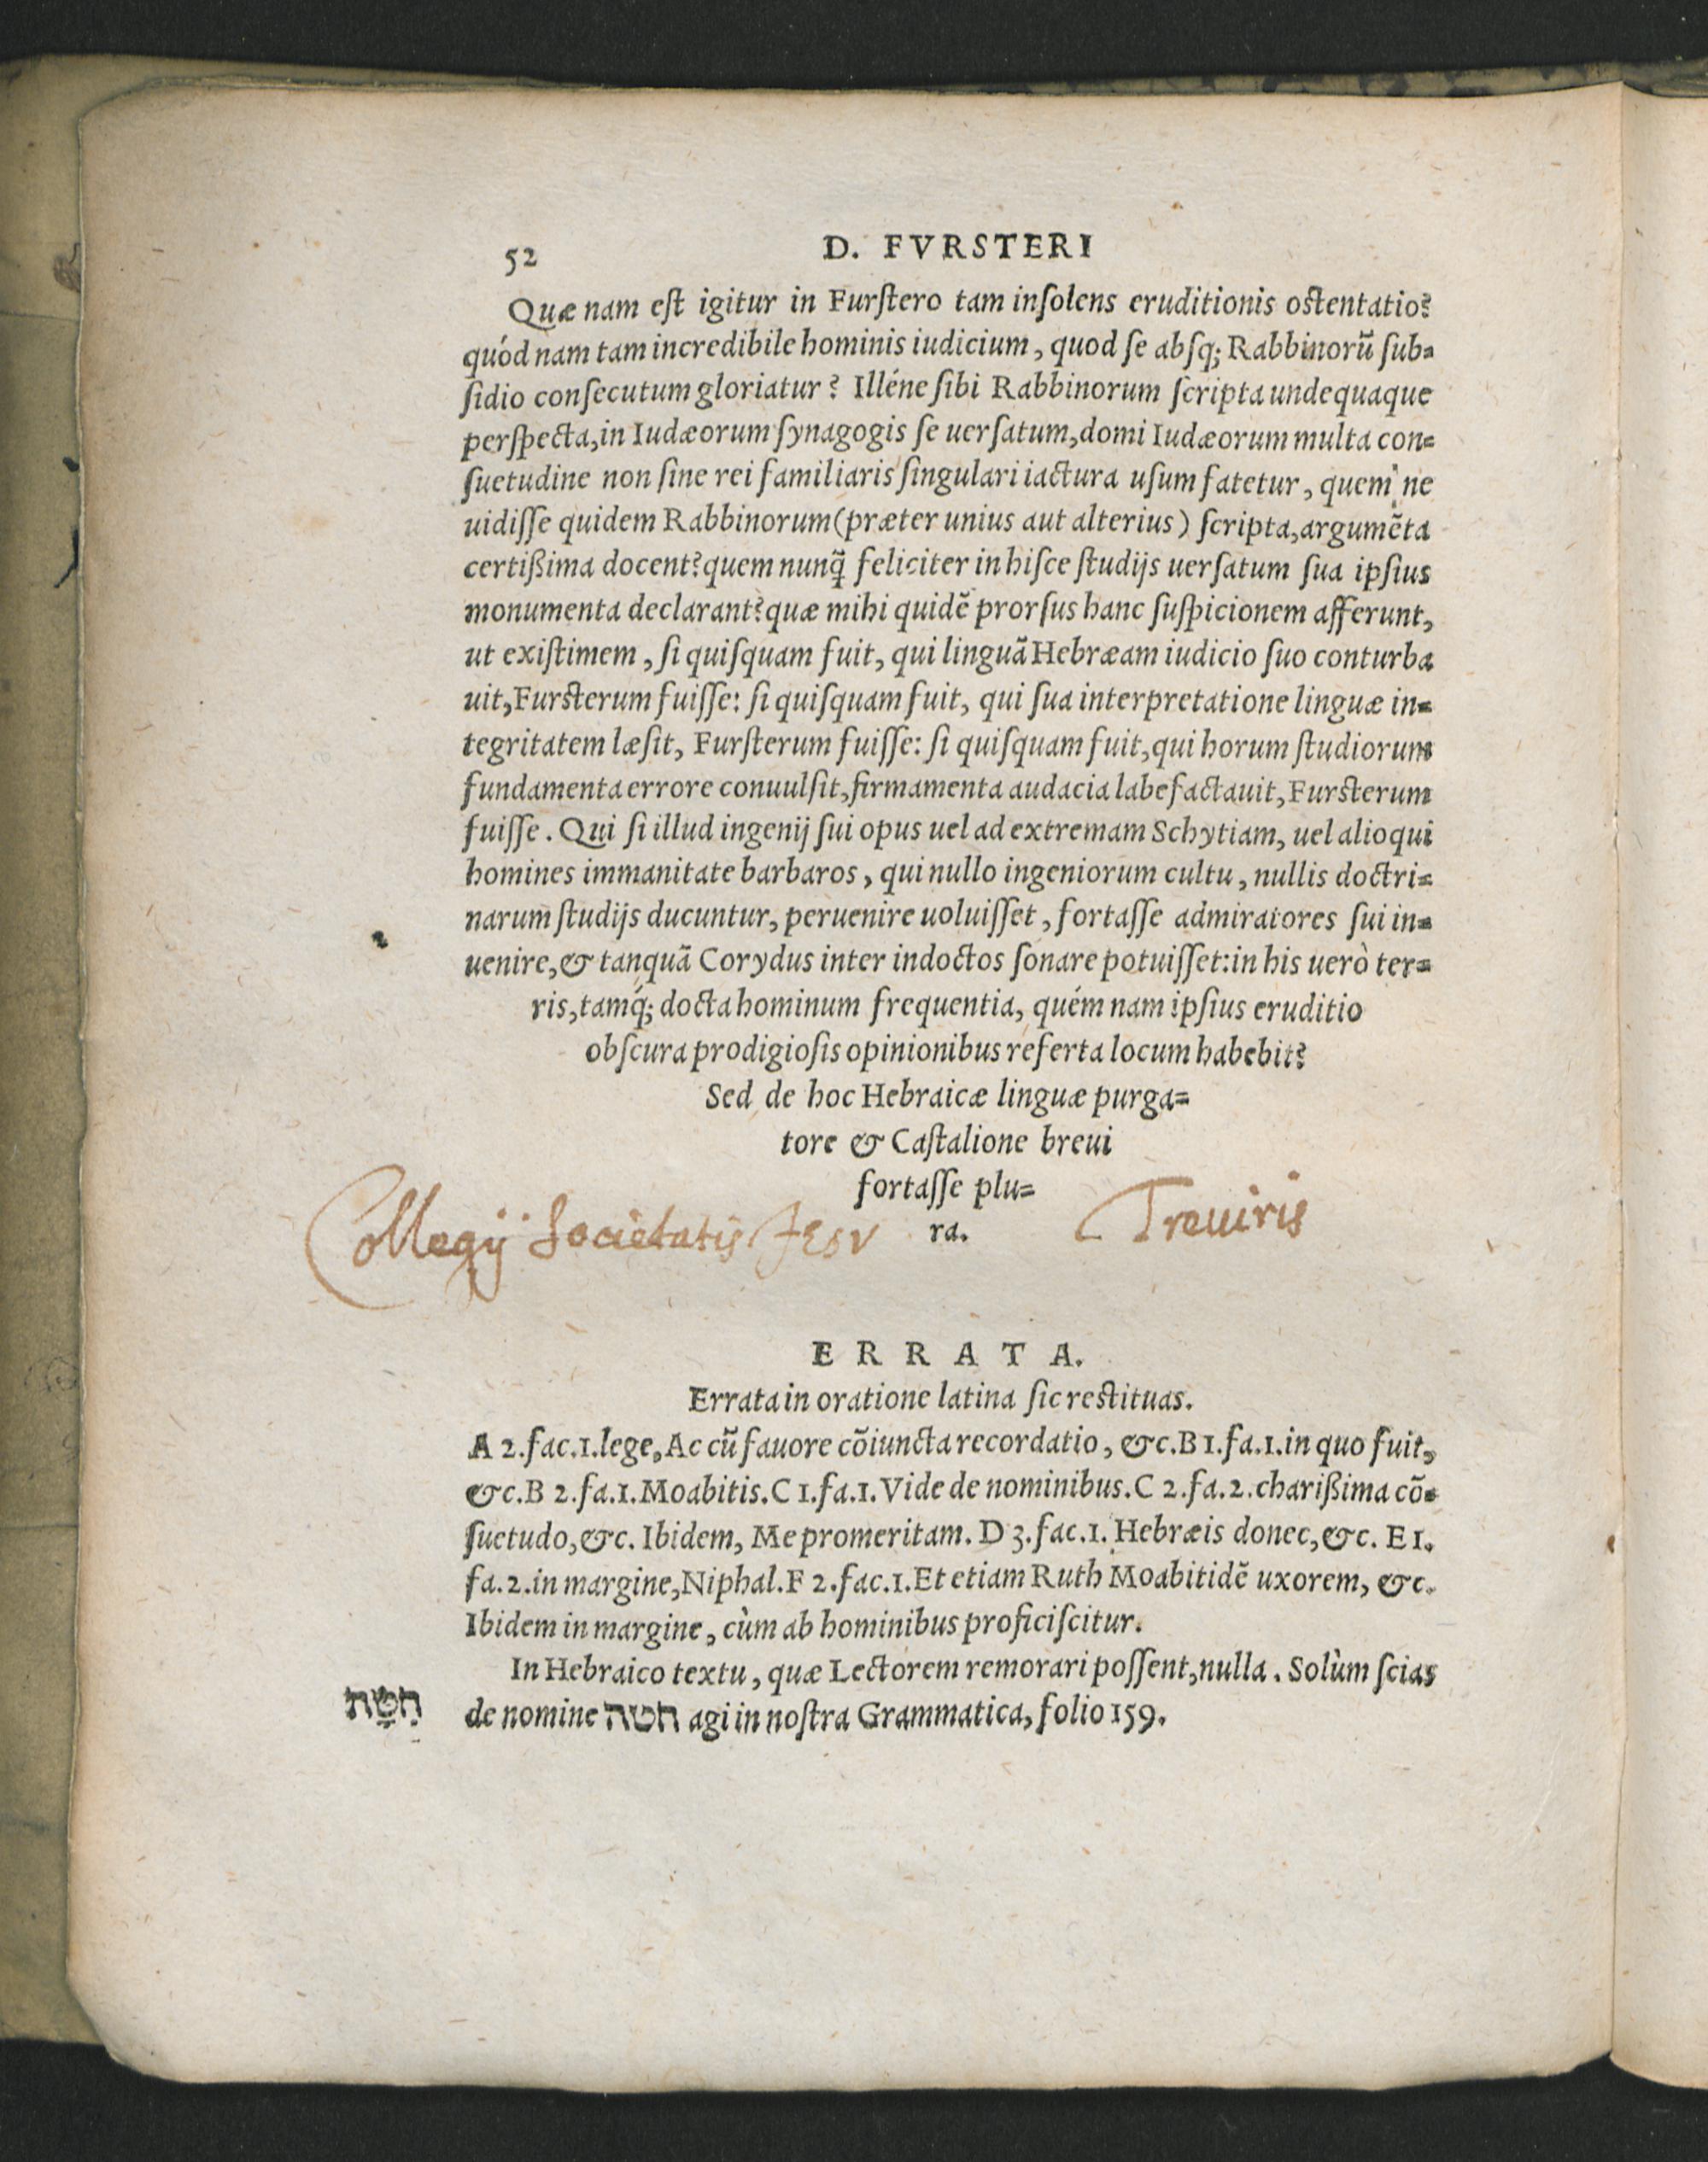 52 D. FVRSTERI
Quæ nam eſt igitur in Furſtero tam inſolens eruditionis oſtentatio?
quód nam tam incredibile hominis iudicium, quod ſe abſq; Rabbinorũ ſub=
ſidio conſecutum gloriatur? Illéne ſibi Rabbinorum ſcripta undequaque
perſpecta, in Iudæorum ſynagogis ſe uerſatum, domi Iudæorum multa con=
ſuetudine non ſine rei familiaris ſingulari iactura uſum fatetur, quem ne
uidiſſe quidem Rabbinorum (præter unius aut alterius) ſcripta, argumẽta
certißima docent? quem nunq̃ feliciter in hiſce ſtudijs uerſatum ſua ipſius
monumenta declarant? quæ mihi quidẽ prorſus hanc ſuſpicionem afferunt,
ut exiſtimem, ſi quiſquam fuit, qui linguã Hebræam iudicio ſuo conturba
uit, Furſterum fuiſſe: ſi quiſquam fuit, qui ſua interpretatione linguæ in=
tegritatem læſit, Furſterum fuiſſe: ſi quiſquam fuit, qui horum ſtudiorum
fundamenta errore conuulſit, firmamenta audacia labefactauit, Furſterum
fuiſſe. Qui ſi illud ingenij ſui opus uel ad extremam Schytiam, uel alioqui
homines immanitate barbaros, qui nullo ingeniorum cultu, nullis doctri=
narum ſtudijs ducuntur, peruenire uoluiſſet, fortaſſe admiratores ſui in=
uenire, & tanquã Corydus inter indoctos ſonare potuiſſet: in his uerò ter=
ris, tamq́; docta hominum frequentia, quém nam ipſius eruditio
obſcura prodigioſis opinionibus referta locum habebit?
Sed de hoc Hebraicæ linguæ purga=
tore & Caſtalione breui
fortaſſe plu=
ra.
Collegij Societatis Jesv Treuiris
ERRATA.
Errata in oratione latina ſic reſtituas.
A 2. fac. 1. lege, Ac cũ fauore cõiuncta recordatio, &c. B 1. fa. 1. in quo fuit,
&c. B 2. fa. 1. Moabitis. C 1. fa. 1. Vide de nominibus. C 2. fa. 2. charißima cõ=
ſuetudo, &c. Ibidem, Me promeritam. D 3. fac. 1. Hebræis donec, &c. E 1.
fa. 2. in margine, Niphal. F 2. fac. 1. Et etiam Ruth Moabitidẽ uxorem, &c.
Ibidem in margine, cùm ab hominibus proficiſcitur.
In Hebraico textu, quæ Lectorem remorari poſſent, nulla. Solùm ſcias
de nomine חטה agi in noſtra Grammatica, folio 159.
חִטָּה